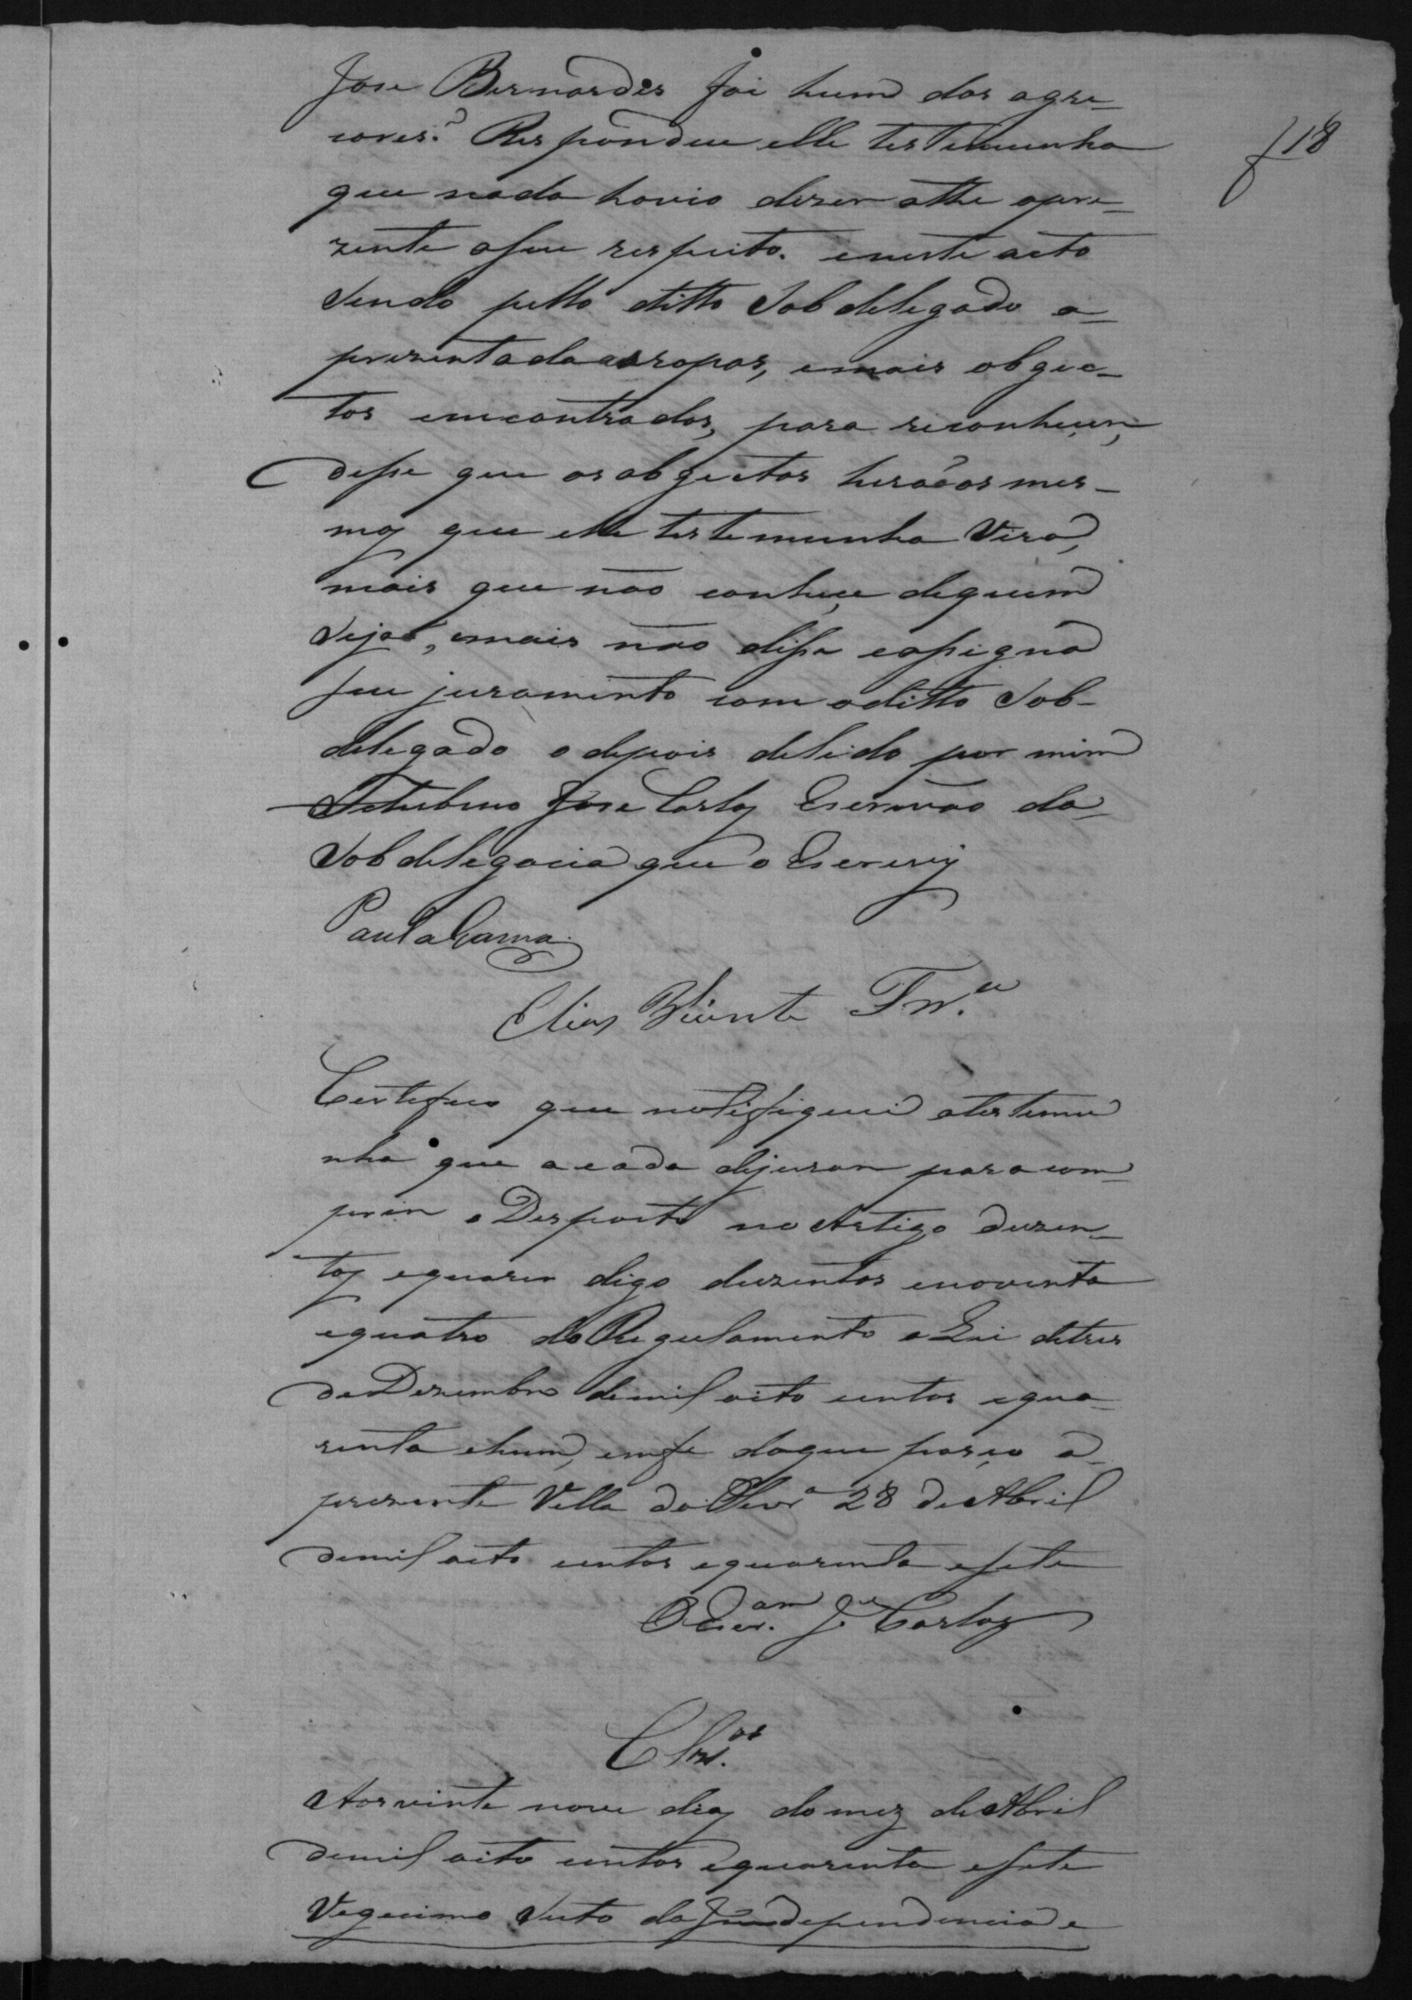 f 18
Jose Bernardes foi hum dos agre-
cores? Respondeu elle testemunha
que nada havia dizer athe apre-
zente aseu respeito. eneste acto
sendo pello ditto Sobdelegado a-
prezentada as ropas, emais obgec-
tos emcontrados, para reconhecer,
disse que os obgectos herão os mes-
mos que elle testemunha Vira,
mais que não conhece dequem
sejao, emais não disse eassigna
seu juramento com oditto Sob-
delegado odepois delido por mim
Jose Carlos Escrivão da
Sobdelegacia que o Escrevy
Paula Gama
Elias Vicente Frr.ª
Certefico que notifiquei atestemu
nha que acada dejurar para com-
prir o Desposto no Artigo duzen-
tos equaren digo duzentos enoventa
equatro do Regulamento e Lei detres
de Dezembro demil oito centos equa-
renta ehum, emfe daque passo a
prezente Villa da Olivr.ª 28 de Abril
demil oito centos equarenta esete
O Escr.am J.e Carlos
Clns.os
Aos vinte nove dias do mez de Abril
demil oito centos equarenta esete
Vegecimo Sesto da Independencia e